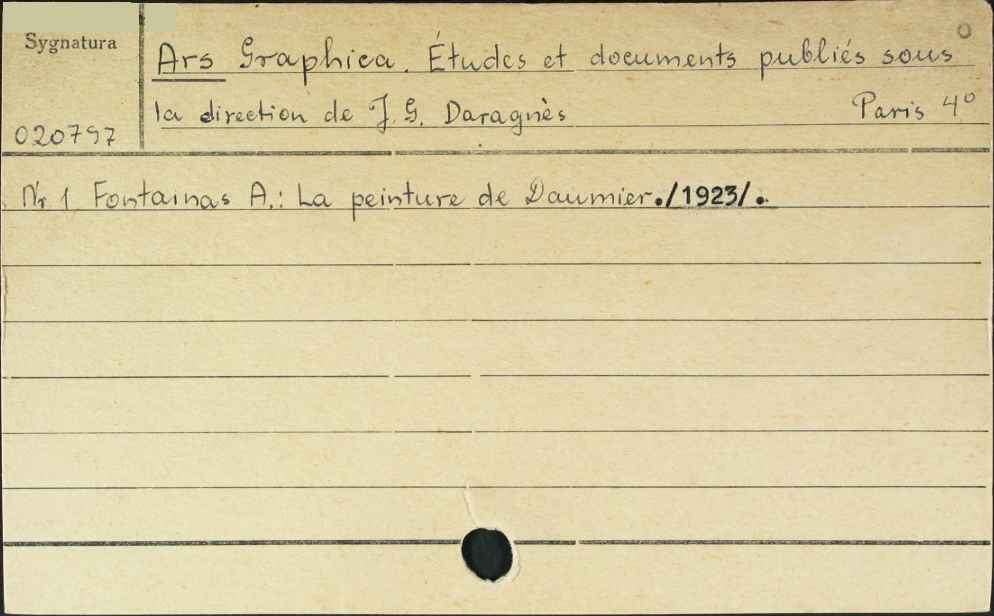 Sygnatura
Ars Graphica. Études et documents publiés sous
la direction de J. G. Daragnès Paris 4°
020797
Nr 1 Fontainas A.: La peinture de Daumier./1923/.